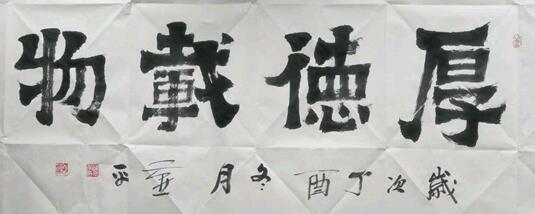 厚德載物
歲次丁酉冬月